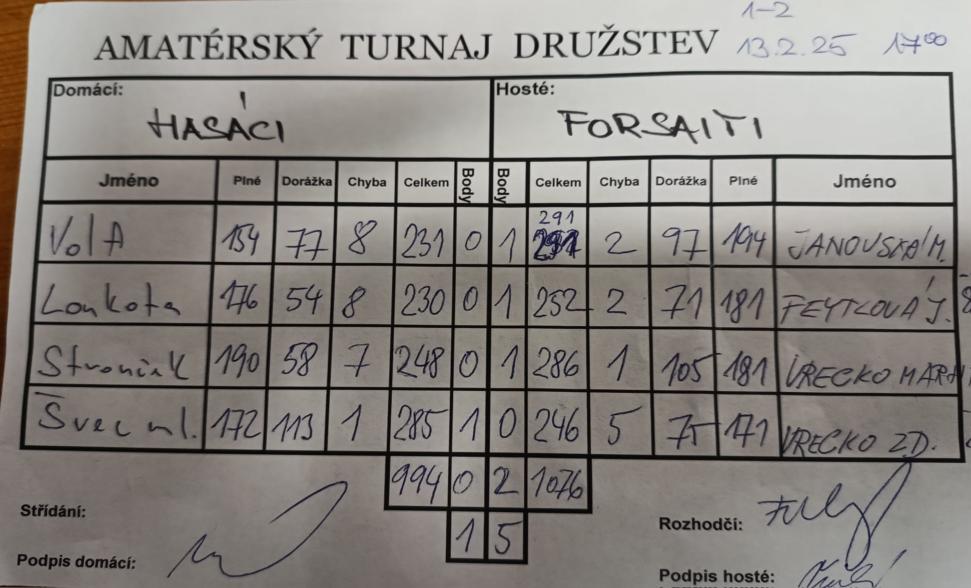 1-2
AMATÉRSKÝ TURNAJ DRUŽSTEV 13.2.25 17⁰⁰
Domácí: Hosté:
HASÁCI FORSAITI
Jméno Plné Dorážka Chyba Celkem Body Body Celkem Chyba Dorážka Plné Jméno
291
VolA 154 77 8 231 0 1 291 2 97 194 JANOUSKÁ M.
Loukota 176 54 8 230 0 1 252 2 71 181 FEYTLOVÁ J.
190 58 7 248 0 1 286 1 105 181 VRECKO MAR
Švec ml. 172 113 1 285 1 0 246 5 75 171 VRECKO ZD.
994 0 2 1076
1 5
Střídání:
Rozhodčí:
Podpis domácí:
Podpis hosté: